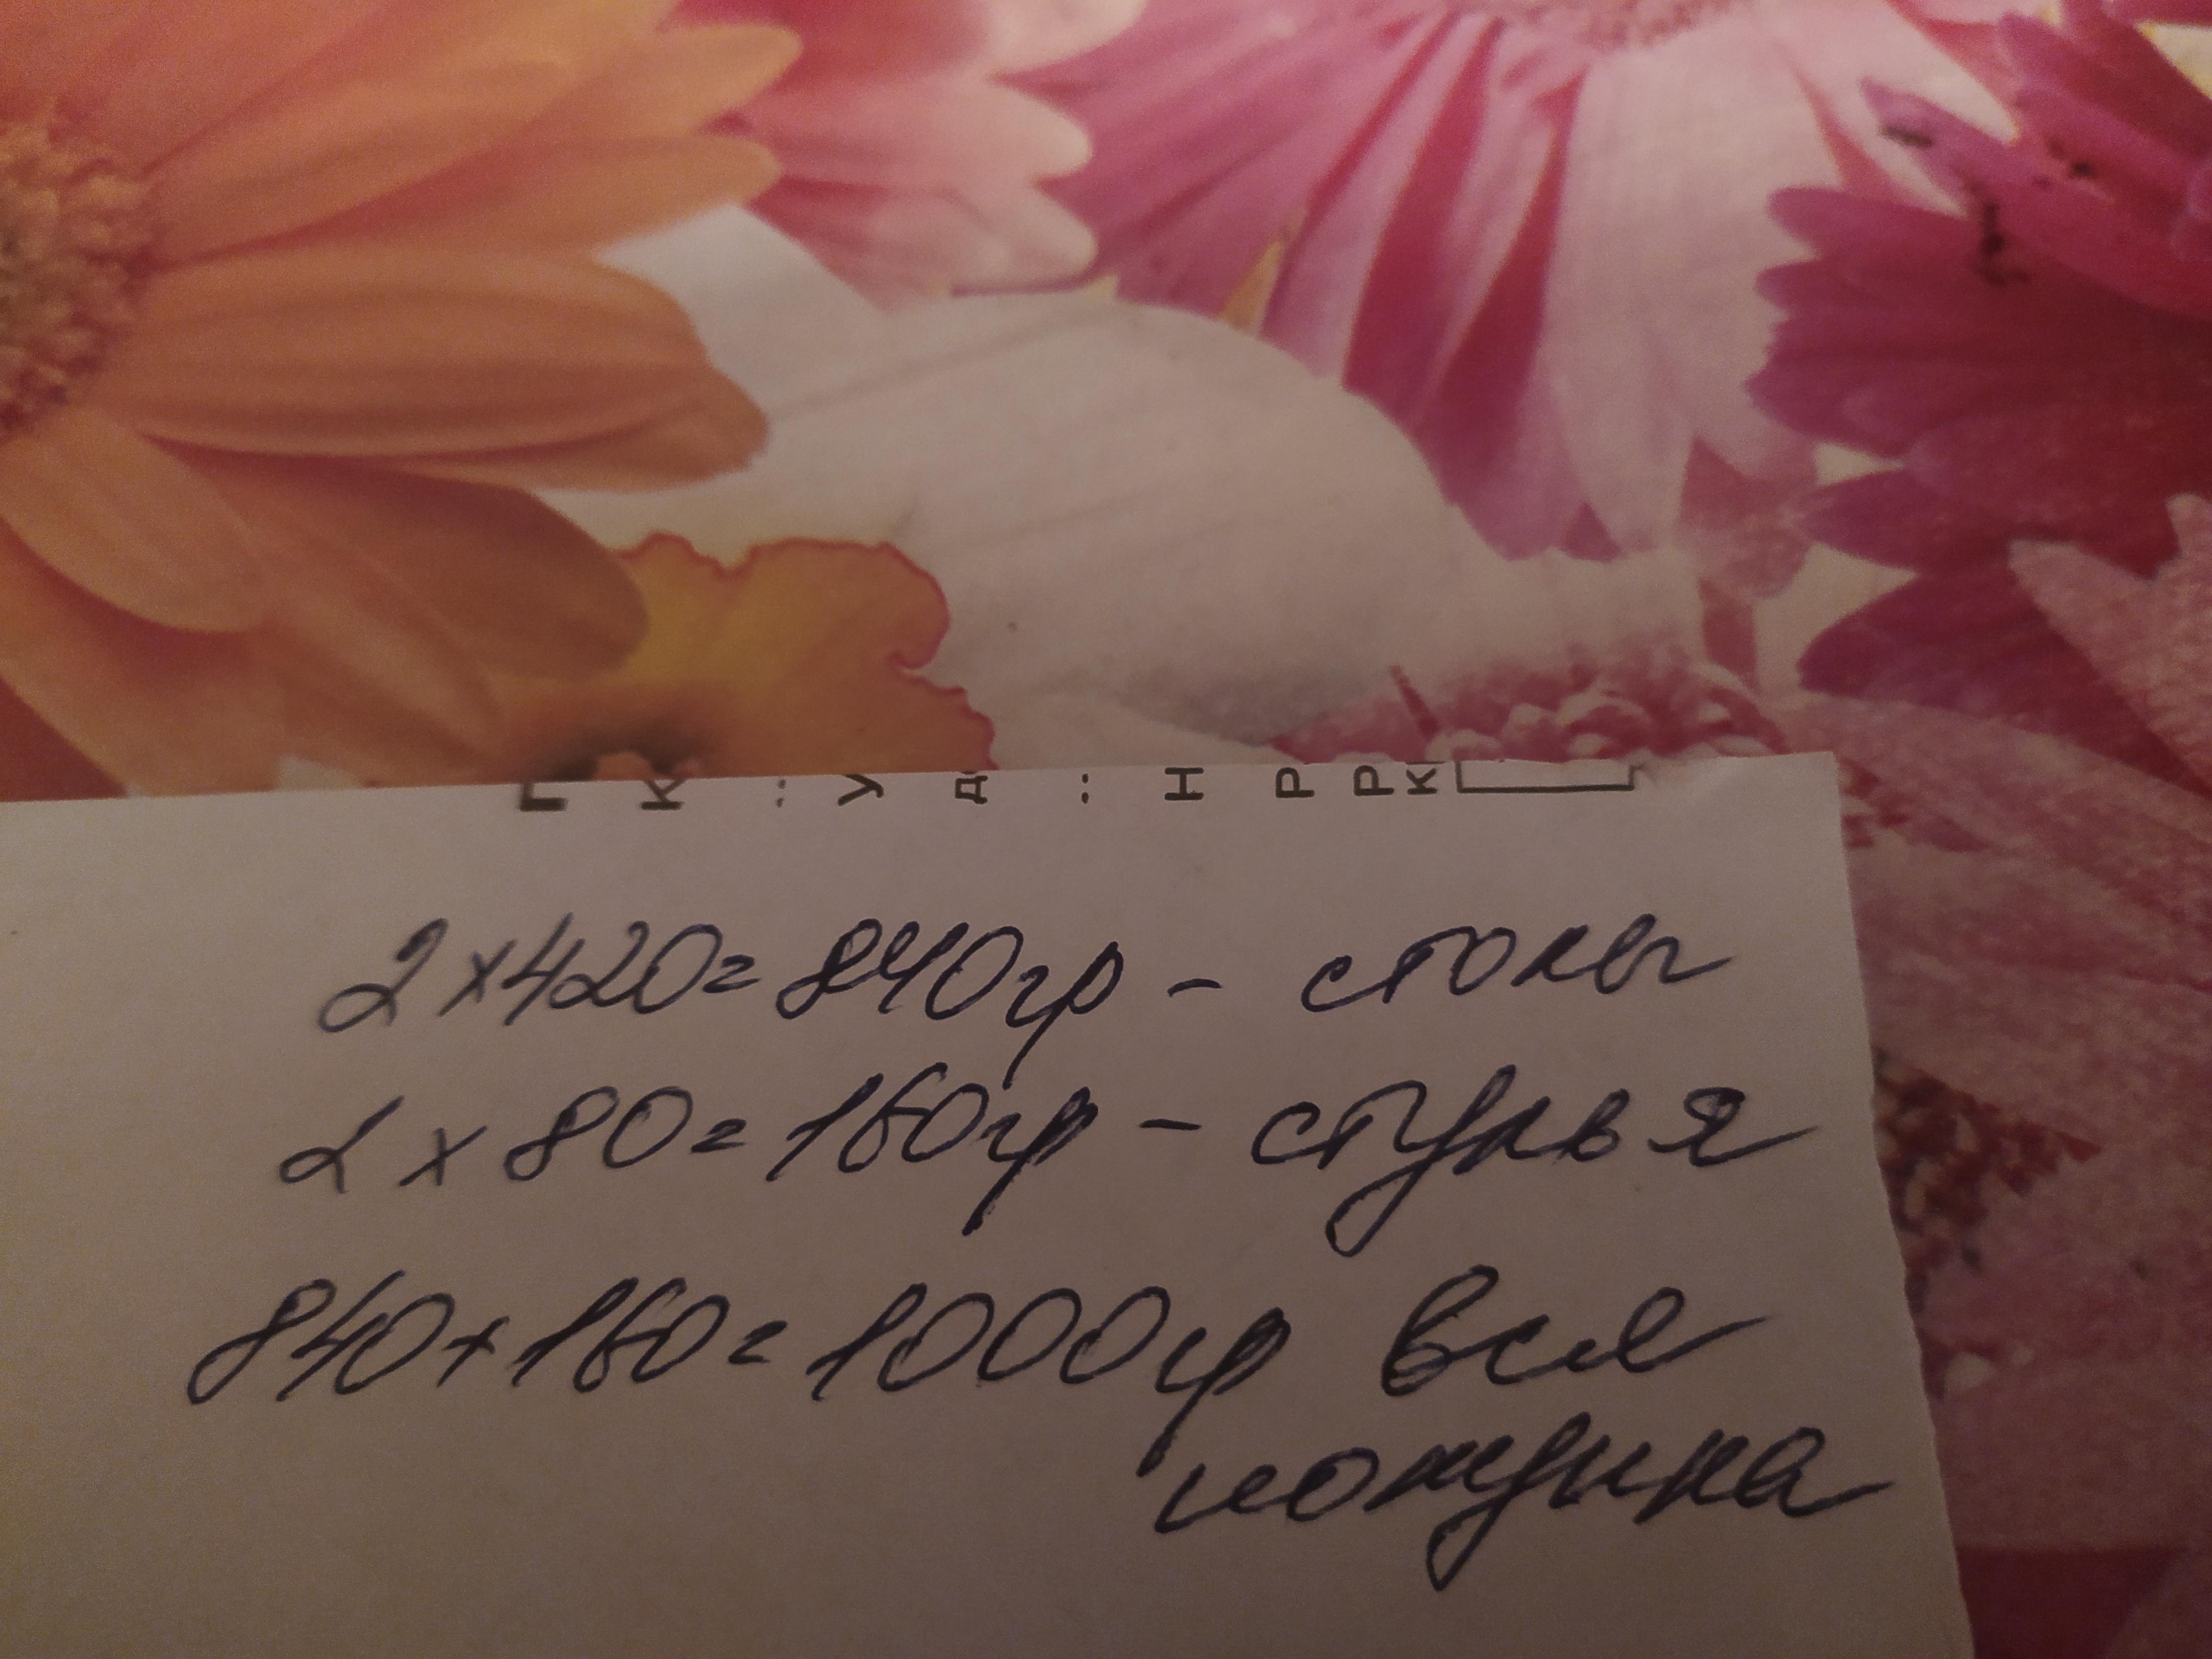 П К : У Д : Н Р Р К
2 х 420 = 840гр - столы
2 х 80 = 160гр - стулья
840 + 160 = 1000гр вся
покупка